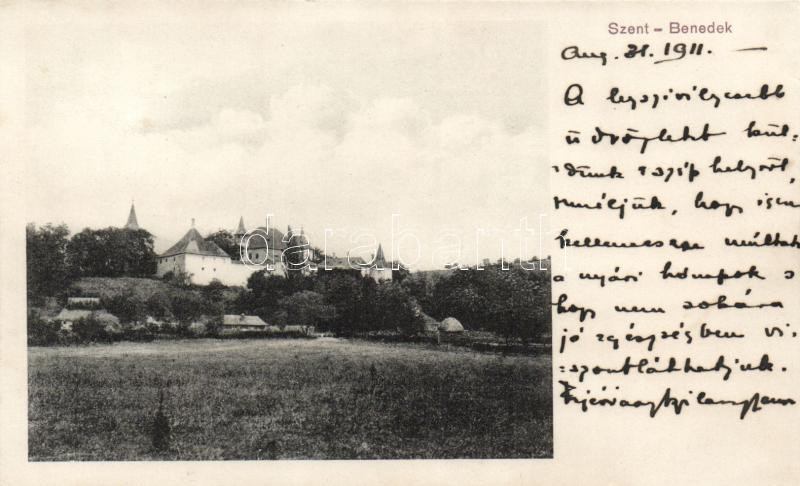 Szent - Benedek
Aug. 31. 1911.
A legszivélyesebb
üdvözletet kül-
dünk e szép helyről,
reméljük, hogy igen
kellemesen múltak
a nyári hónapok s
hogy nem sokára
jó egészségben vi-
szontláthatjuk.
darabanth.com